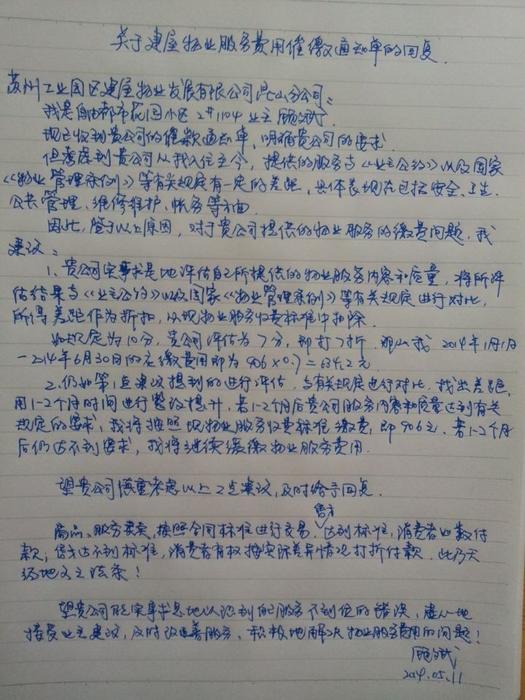 关于建屋物业服务费用催缴通知单的回复
苏州工业园区建屋物业发展有限公司昆山分公司：
我是自由都市花园小区2#1104业主顾斌。
现已收到贵公司的催款通知单，明确贵公司的要求。
但考虑到贵公司从我入住至今，提供的服务与《业主公约》以及国家
《物业管理条例》等有关规定有一定的差距，具体表现在包括安全、卫生、
公共管理、维修维护、帐务等方面。
因此，鉴于以上原因，对于贵公司提供的物业服务的缴费问题，我
建议：
1、贵公司实事求是地评估自己所提供的物业服务内容和质量，将所评
估结果与《业主公约》以及国家《物业管理条例》等有关规定进行对比，
所得差距作为折扣，从现物业服务收费标准中扣除。
如规定为10分，贵公司评估为7分，即打7折，那么我2014年1月1日
－2014年6月30日的应缴费用即为906×0.7=634.2元
2、仍如第1点建议提到的进行评估，与有关规定进行对比，找出差距，
用1-2个月时间进行整改提升，若1-2个月后贵公司服务内容和质量达到有关
规定的要求，我将按照现物业服务收费标准缴费，即906元。若1-2个月
后仍达不到要求，我将继续缓缴物业服务费用。
望贵公司慎重考虑以上2点建议，及时给予回复。
商品、服务买卖，按照合同标准进行交易。售方达到标准，消费者如数付
款，售方达不到标准，消费者有权按实际差异情况打折付款。此乃天
经地义之法条！
望贵公司能实事求是地认识到自己服务不到位的错误，虚心地
接受业主建议，及时改善服务，积极地解决物业服务费用的问题！
顾斌
2014.05.11